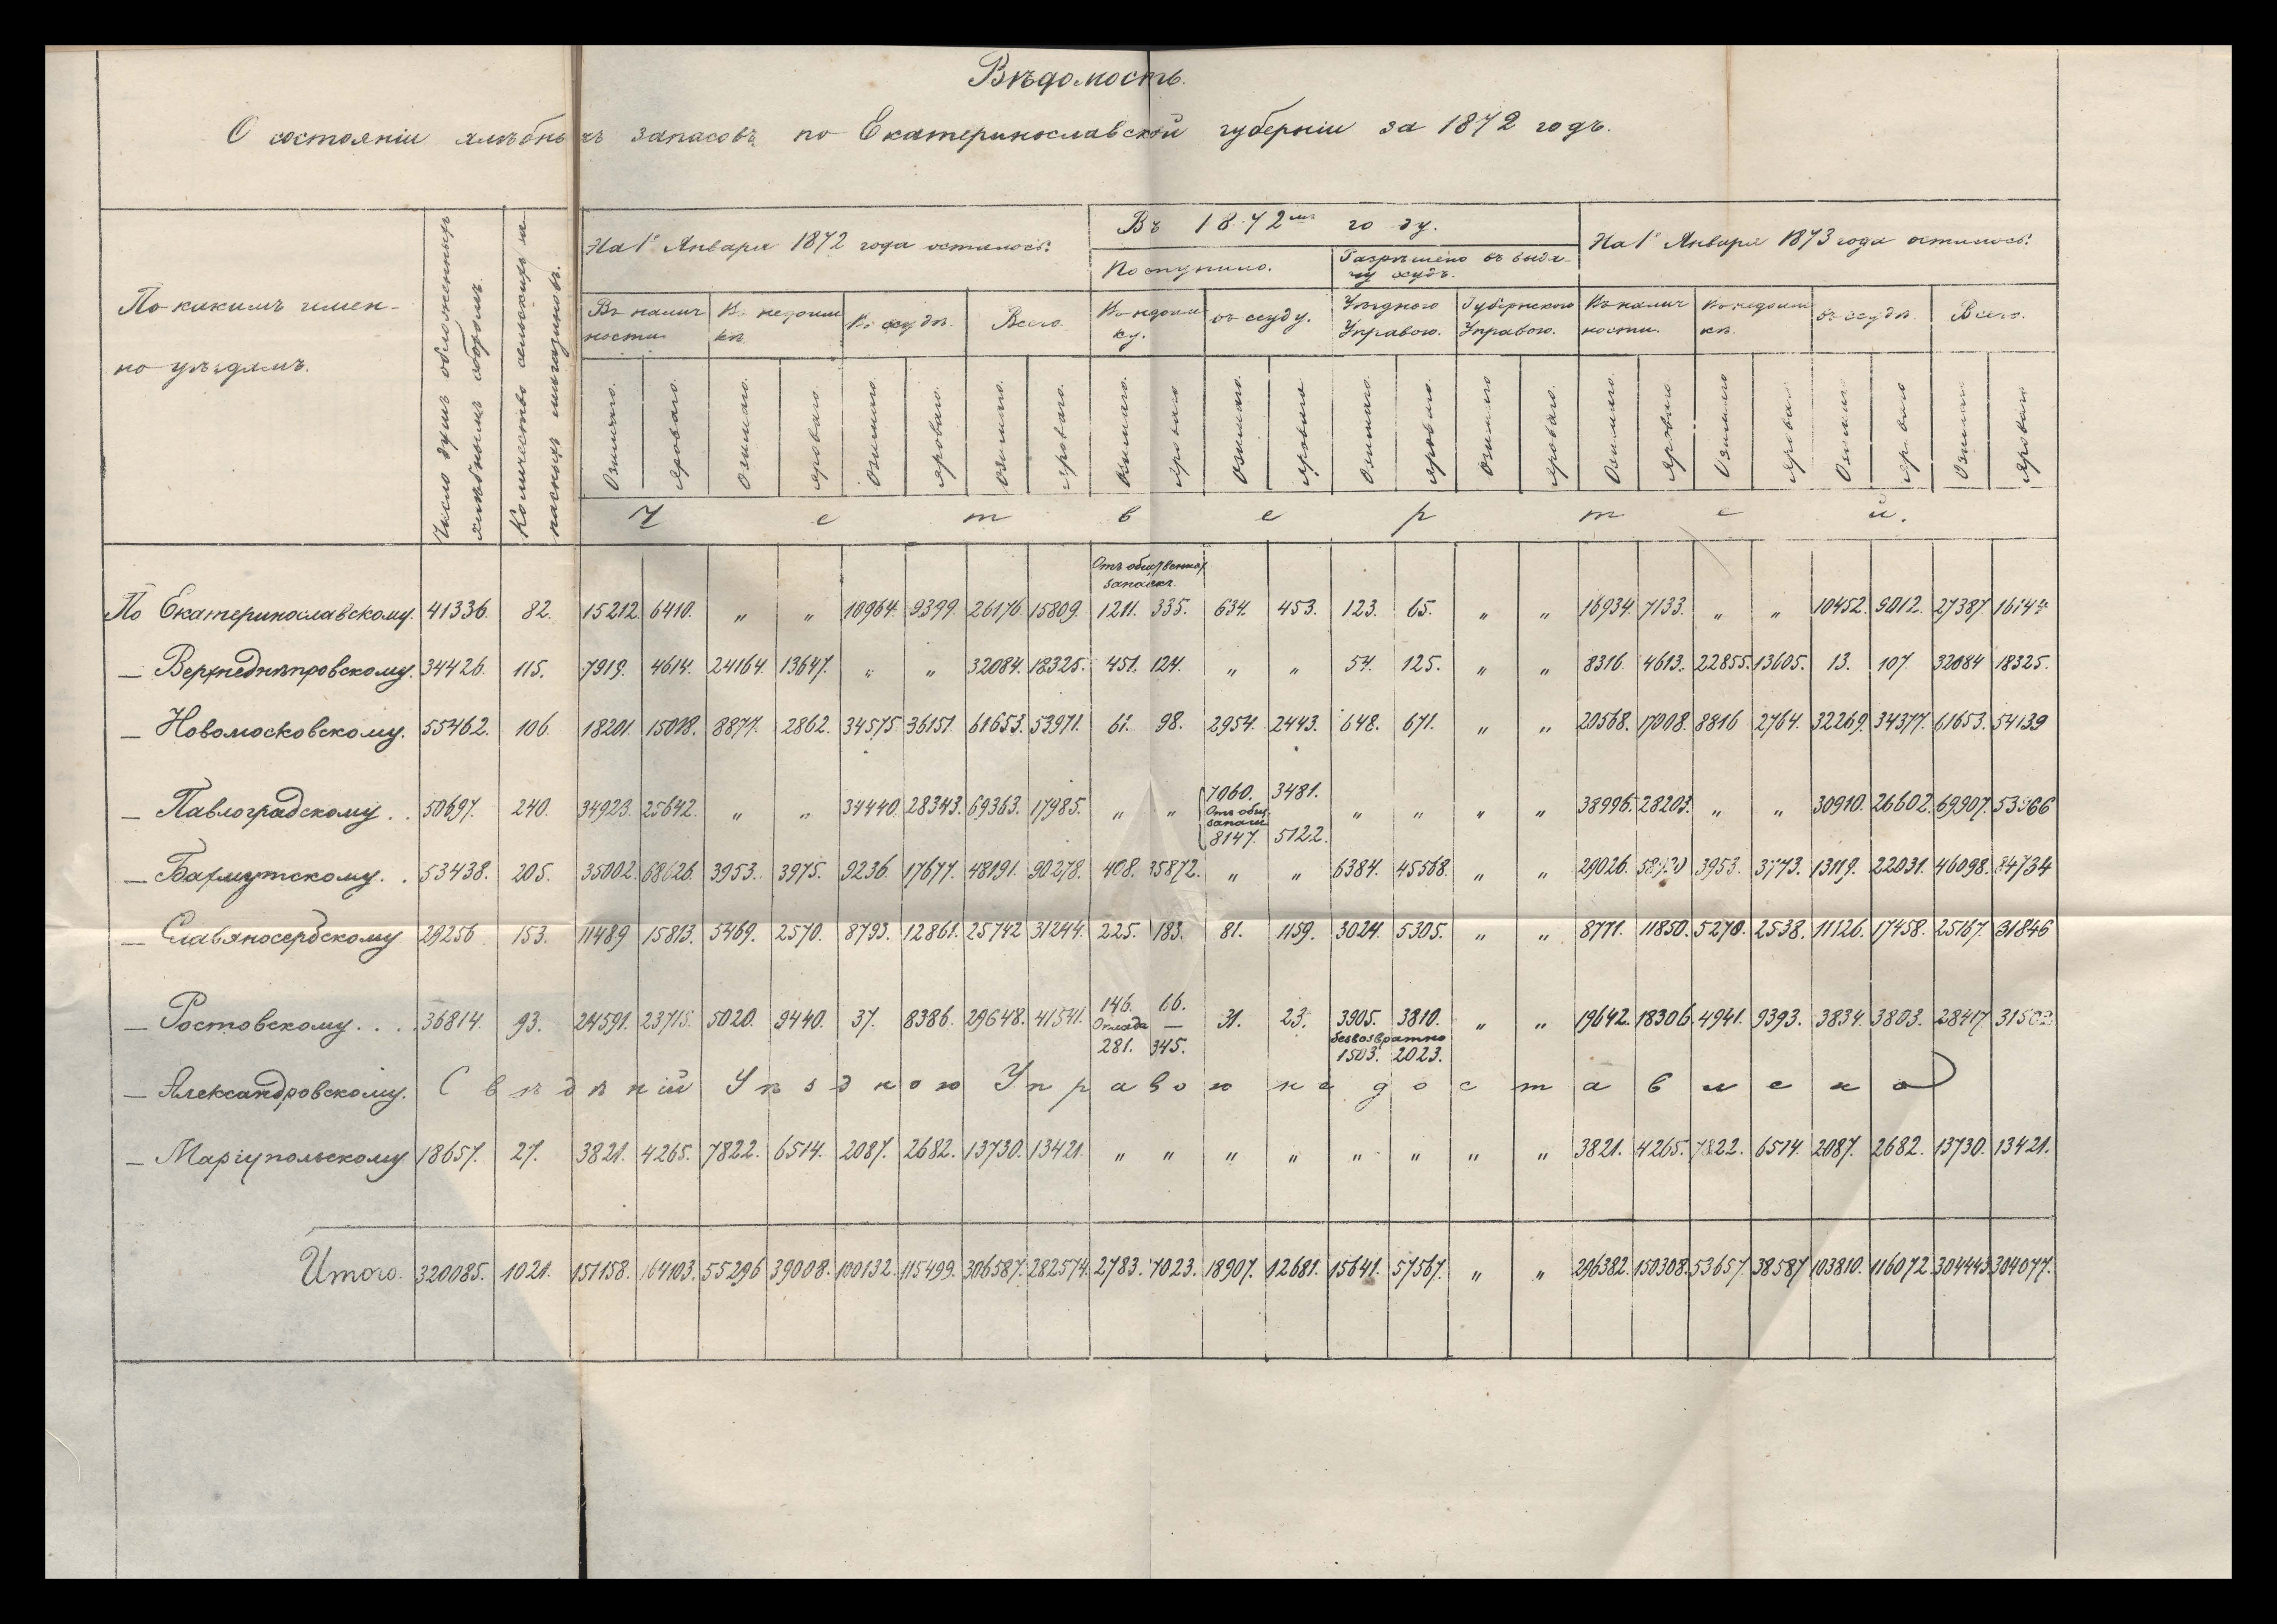 Вѣдомость.
О состояніи хлѣбныхъ запасовъ по Екатеринославской губерніи за 1872 годъ.
По какимъ имен-
но уѣздамъ.
Число душъ обложенныхъ
хлѣбнымъ сборомъ.
Количество сельскихъ за-
пасныхъ магазиновъ.
На 1е Января 1872 года осталось:
Въ 1872мъ году.
На 1е Января 1873 года осталось:
Поступило.
Разрѣшено въ выда-
чу ссудъ.
Въ налич
ности
Въ недоим
кѣ.
Въ ссудѣ.
Всего.
Въ недоим
ку.
въ ссуду.
Уѣздною
Управою.
Губернскою
Управою.
Въ налич
ности.
Въ недоим
кѣ.
въ ссудѣ.
Всего.
Озимаго. Яроваго. Озимаго. Яроваго. Озимаго. Яроваго. Озимаго. Яроваго. Озимаго. Яроваго Озимаго. Яроваго Озимаго. Яроваго. Озимаго Яроваго. Озимаго. Яроваго Озимаго Яроваго Озимаго Яроваго Озимаго Яроваго
Четвертей.
Отъ обществен.
запашк.
По Екатеринославскому. 41336. 82. 15212. 6410. „ „ 10964. 9399. 26176. 15809. 1211. 335. 634. 453. 123. 65. „ „ 16934. 7133. „ „ 10452. 9012. 27387.
— Верхнеднѣпровскому. 34426. 115. 7919. 4614. 24164. 13647. „ „ 32084. 18325. 451. 124. „ „ 54. 125. „ „ 8316. 4613. 22855. 13605. 13. 107. 32084 18325.
— Новомосковскому. 55462. 106. 18201. 15018. 8877. 2862. 34575 36151. 61653. 53971. 61. 98. 2954. 2443. 648. 671. „ „ 20568. 17008. 8816 2764. 32269. 34377. 61653. 54139
7060. 3481.
— Павлоградскому . . 50697. 240. 34923. 25642. „ „ 34440. 28343. 69363. 17985. „ „ Отъ общ. „ „ „ „ 38996. 28203. „ „ 30910. 26602. 69907.
запаш.
8147. 5122.
— Бахмутскому. . 53438. 205. 35002. 68626. 3953. 3975. 9236. 17677. 48191. 90278. 408. 35872. „ „ 6384. 45568. „ „ 29026. 3953. 3773. 13119. 22031. 46098. 84734
— Славяносербскому 29256 153. 11489 15813. 5469. 2570. 8793. 12861. 25742 31244. 225. 183. 81. 1159. 3024. 5305. „ „ 8771. 11850. 5270. 2538. 11126. 17458. 25167. 31846
146. 66.
— Ростовскому. . . . 36814. 93. 24591. 23715. 5020. 9440. 37. 8386. 29648. 41541. Оклада — 31. 23. 3905. 3810. „ „ 19642. 18306. 4941. 9393. 3834. 3803. 28417
281. 345. безвозвратно
1503. 2023.
— Александровскому. Свѣдѣній Уѣздною Управою не доставлено
— Маріупольскому 18657. 27. 3821. 4265. 7822. 6514. 2087. 2682. 13730. 13421. „ „ „ „ „ „ „ „ 3821. 4265. 7822. 6514. 2087. 2682. 13730. 13421.
Итого. 320085. 1021. 151158. 164103. 55296 39008. 100132. 115499. 306587. 282574. 2783. 7023. 18907. 12681. 15641. 57567. „ „ 296382. 150308. 53657. 38587 103810. 116072. 304443. 304077.